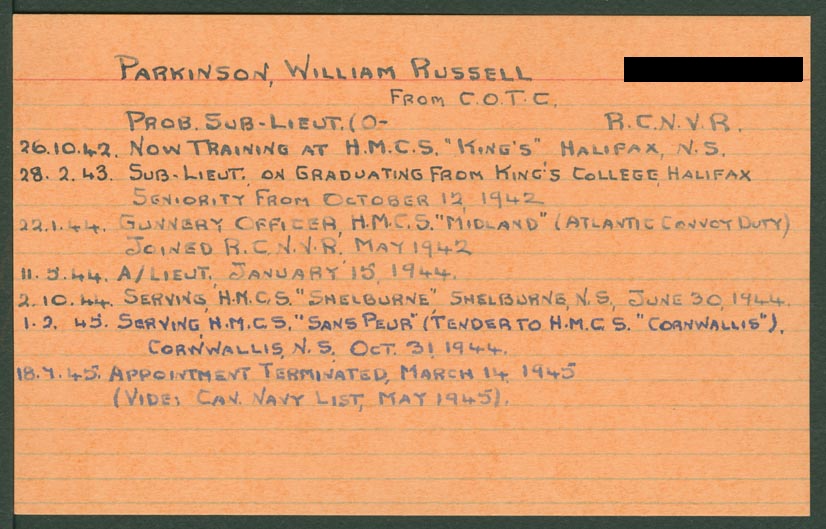 PARKINSON, WILLIAM RUSSELL
FROM C.O.T.C.
PROB. SUB-LIEUT. (O- R.C.N.V.R.
26.10.42. NOW TRAINING AT H.M.C.S. "KING'S" HALIFAX, N.S.
28.2.43. SUB-LIEUT. ON GRADUATING FROM KING'S COLLEGE, HALIFAX
SENIORITY FROM OCTOBER 12, 1942
22.1.44. GUNNERY OFFICER, H.M.C.S. "MIDLAND" (ATLANTIC CONVOY DUTY)
JOINED R.C.N.V.R. MAY 1942
11.5.44. A/LIEUT. JANUARY 15, 1944.
2.10.44. SERVING, H.M.C.S. "SHELBURNE", SHELBURNE, N.S., JUNE 30, 1944.
1.2.45. SERVING, H.M.C.S. "SANS PEUR" (TENDER TO H.M.C.S. "CORNWALLIS"),
CORNWALLIS, N.S. OCT. 31, 1944.
18.7.45. APPOINTMENT TERMINATED, MARCH 14, 1945
(VIDE: CAN. NAVY LIST, MAY 1945).